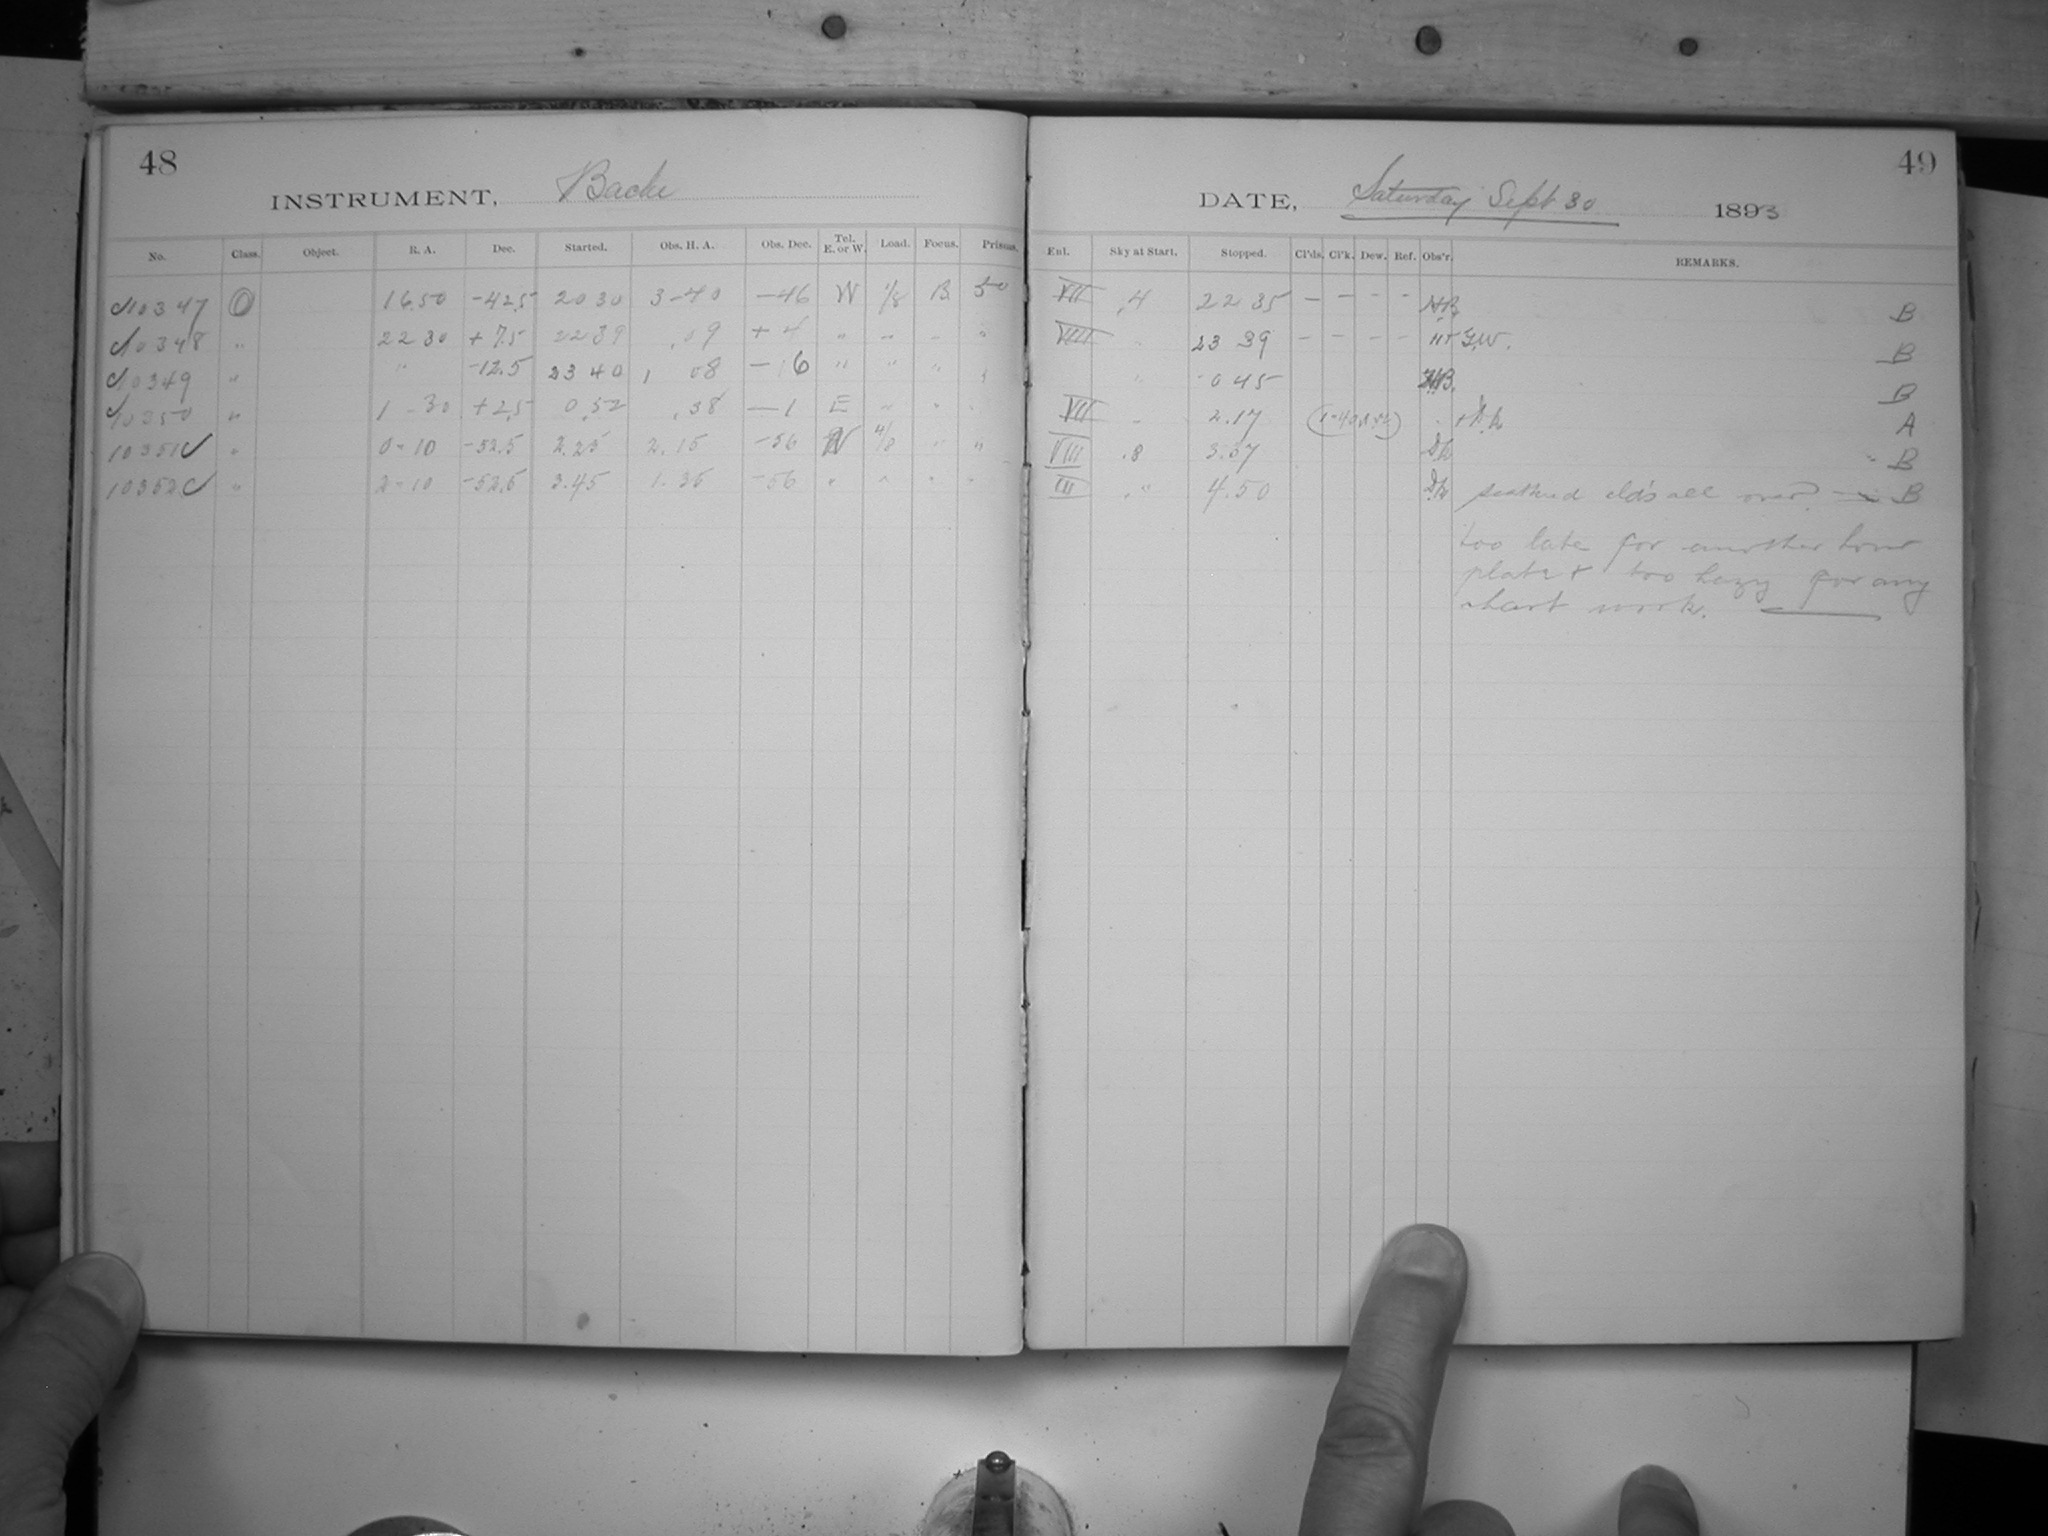 48
INSTRUMENT, Bache
No. Class. Object. R. A. Dec. Started. Obs. H. A. Obs. Dec. Tel. E. or W. Load. Focus. Prisms.
10347 O 16 50 -42.5 20 30 3-40 -46 W 1/8 B. 50
10348 " 22 30 + 7.5 22 39 .09 + 4 " " " "
10349 " " -12.5 23 40 1 08 - 16 " " " "
10350 " 1 - 30 +2.5 0.52 .38 -1 E " " "
10351 " 0-10 -52.5 2.25 2.15 -56 W 4/8 " "
10352 " 2-10 -52.5 3.45 1.35 -56 " " " "
49
DATE, Saturday Sept 30 1893
Enl. Sky at Start. Stopped. Cl'ds. Cl'k. Dew. Ref. Obs'r. REMARKS.
VII .4 22 35 - - - - B
VIII " 23 39 - - - - B
" 0 45 B
VII " 2.17 A
VIII .8 3.37 B
III " 4.50 scattered cld's all over. B
too late for another hour
plate & too hazy for any
chart work.